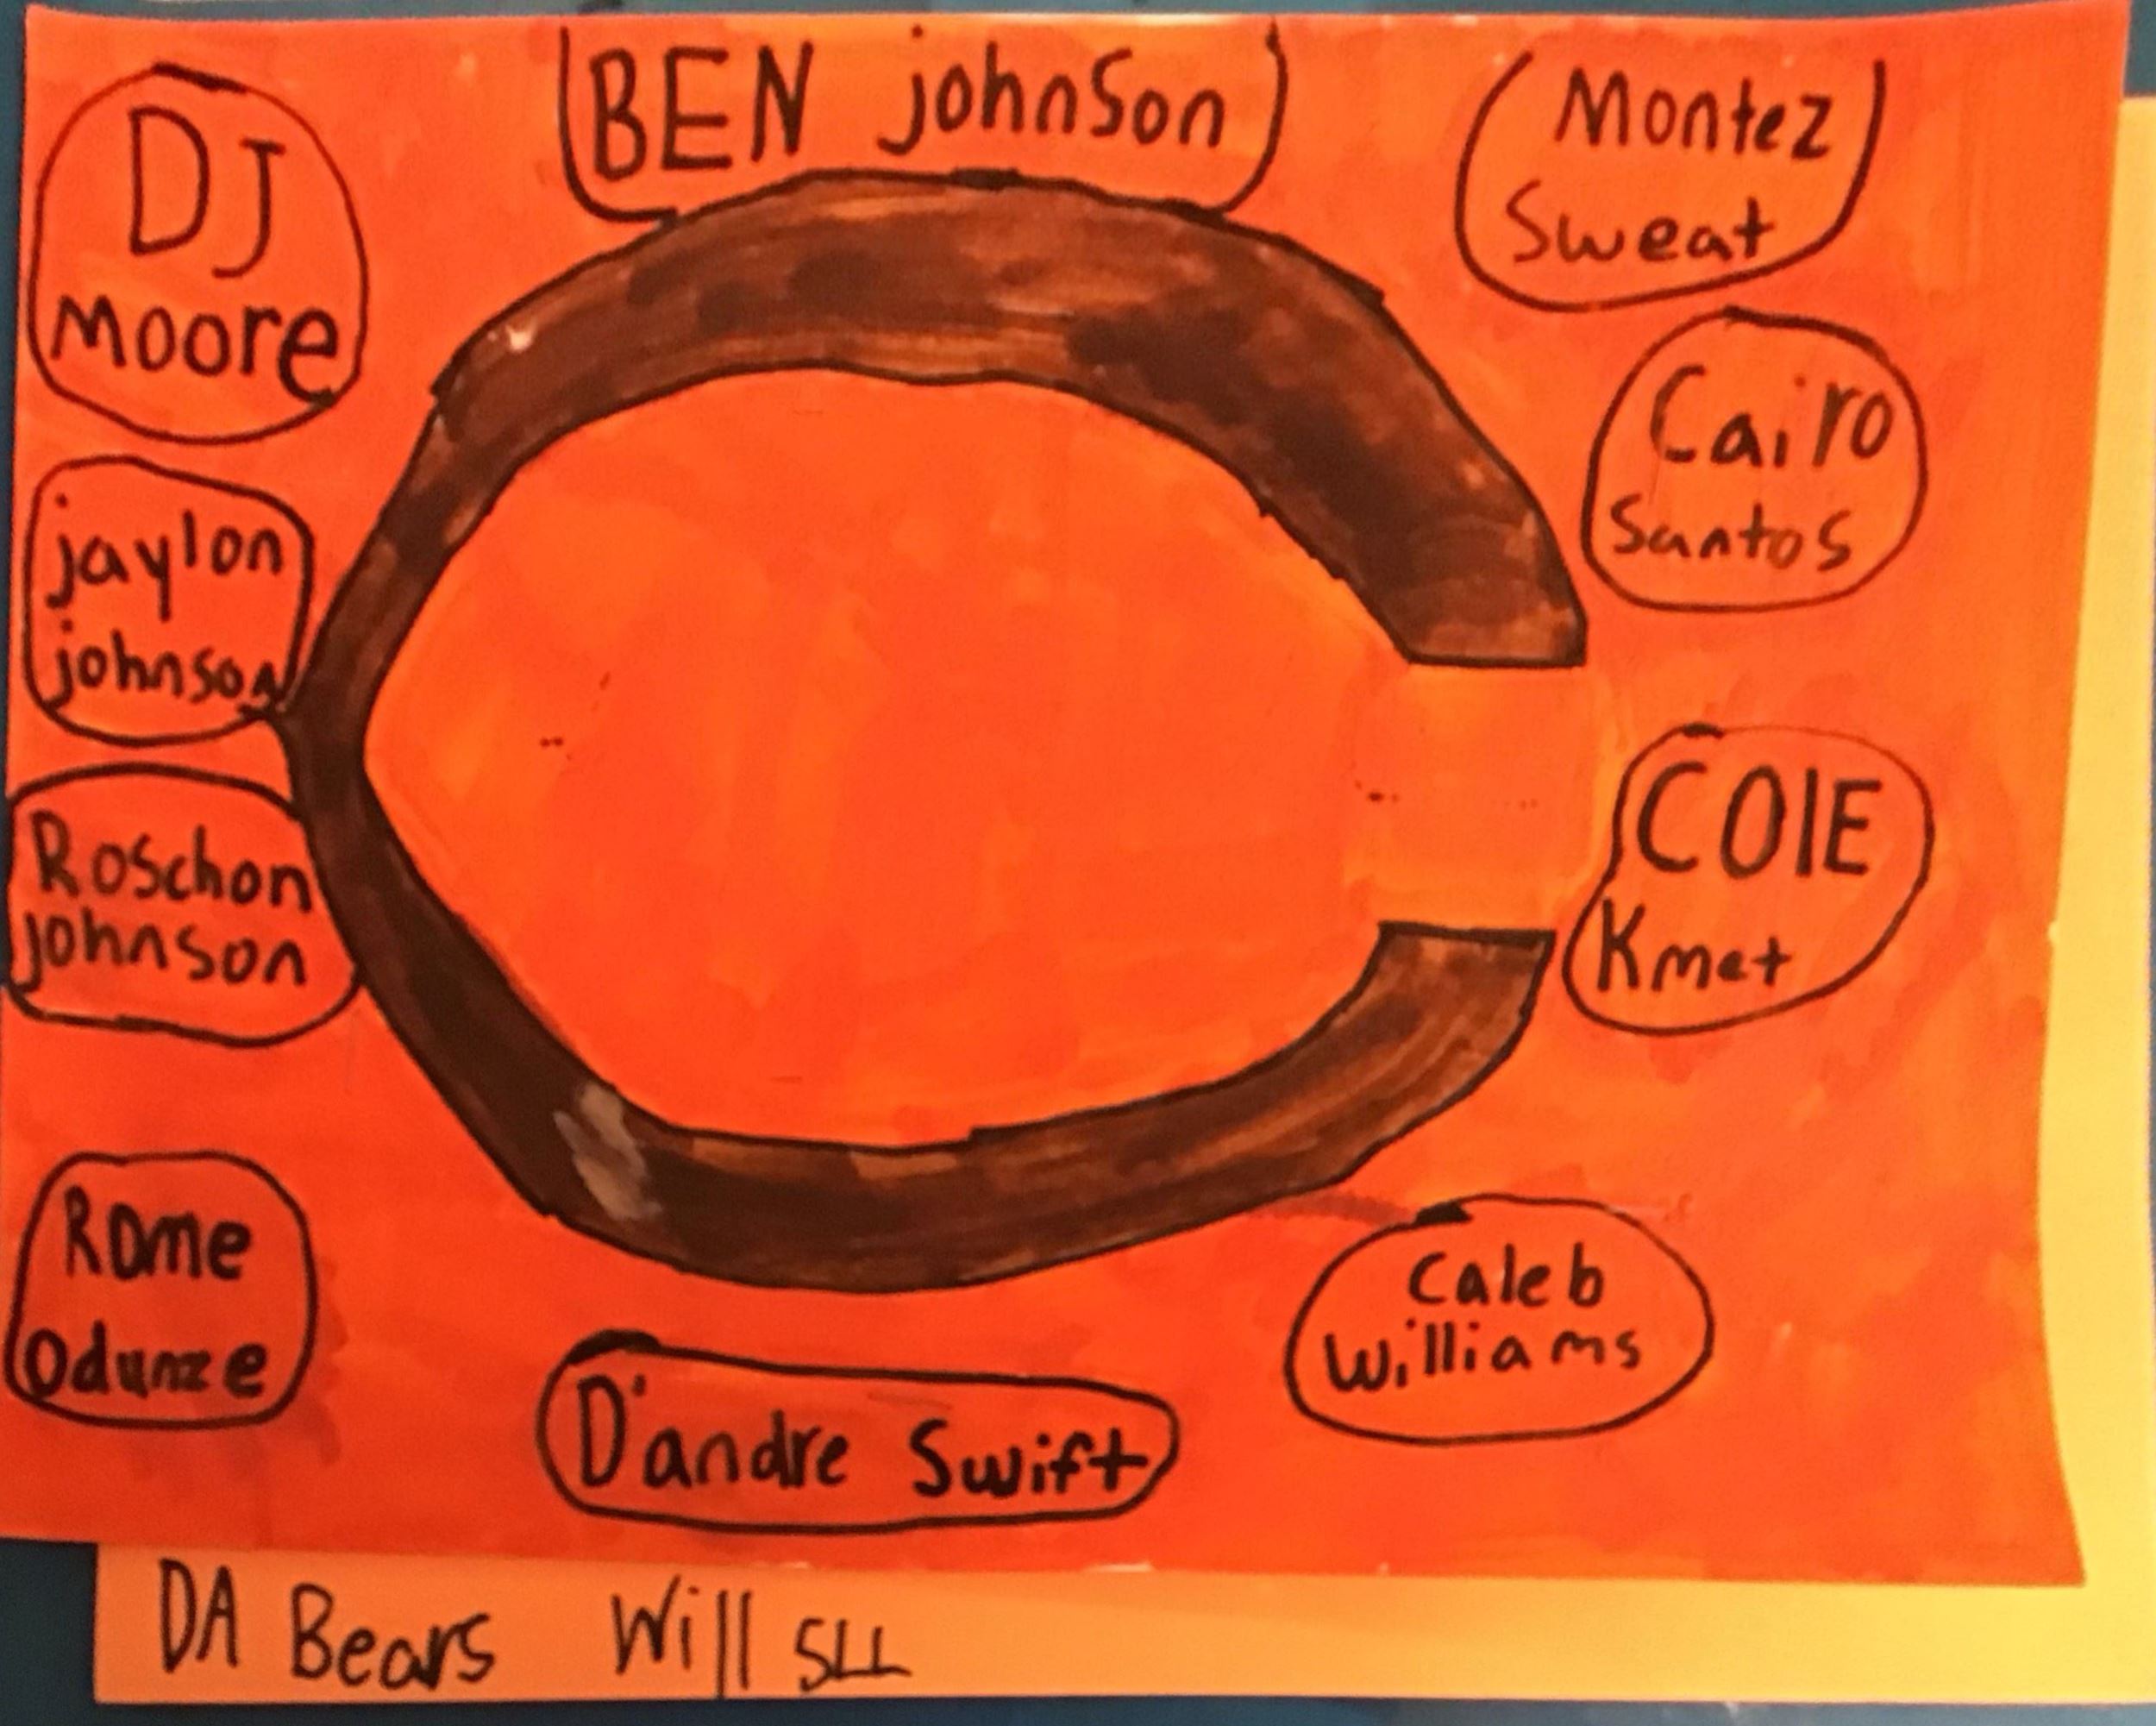 BEN johnson
DJ
Moore
Montez
Sweat
Cairo
Santos
jaylon
johnson
COlE
Kmet
Roschon
johnson
Rome
Odunze
Caleb
Williams
D'andre Swift
DA Bears Will SLL